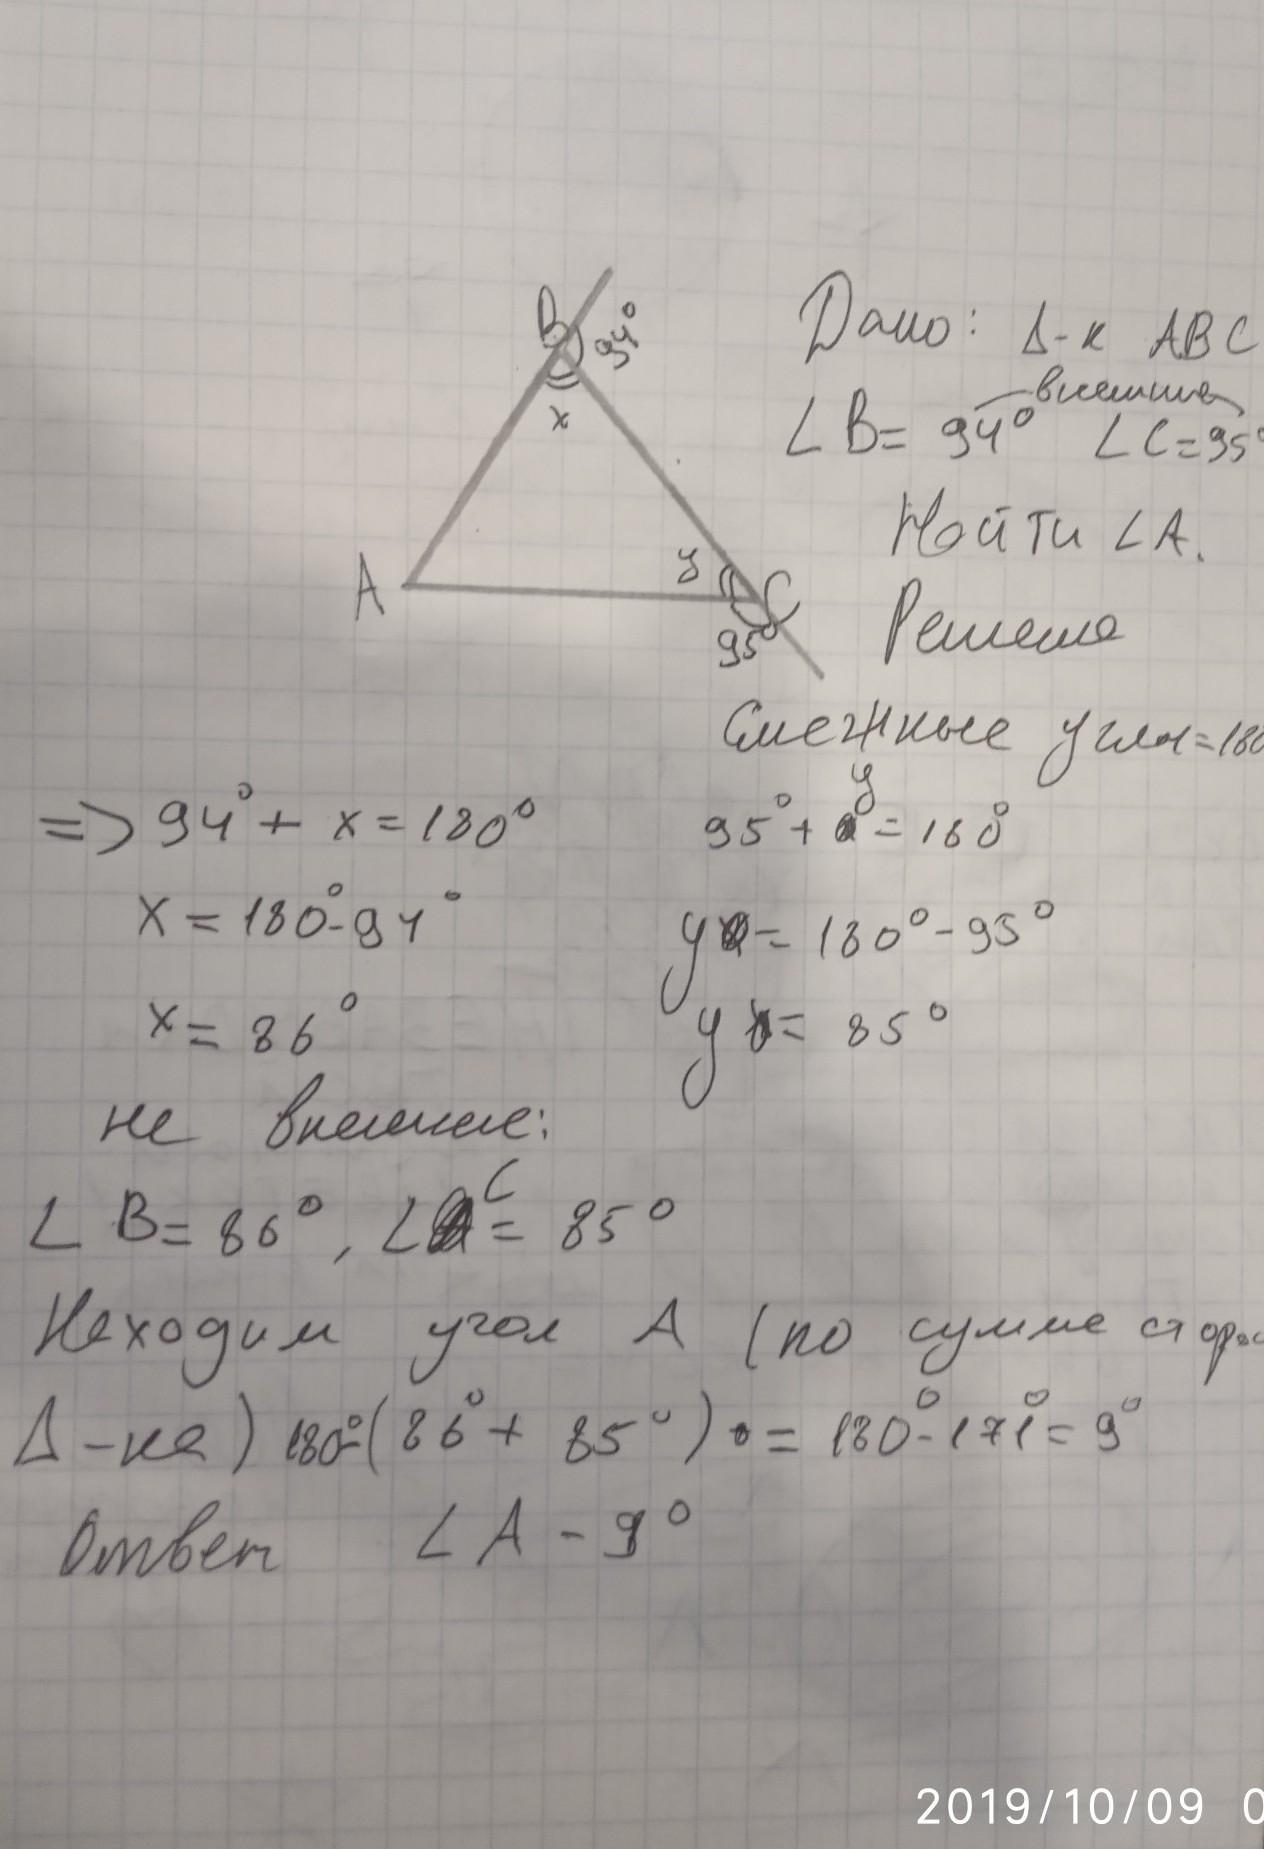 B
94°
x
A
y
C
95°
Дано: Δ-к ABC
внешние
∠B= 94° ∠C=95°
Найти ∠A.
Решение
Смежные углы=180
=> 94°+ x=180°
95°+ y = 180°
x = 180°-94°
y = 180°-95°
x = 86°
y = 85°
не внешние:
∠B=86°, ∠C = 85°
Находим угол A (по сумме сторон
Δ-ка) 180°-(86°+ 85°) = 180°-171°=9°
Ответ ∠A - 9°
2019/10/09 0